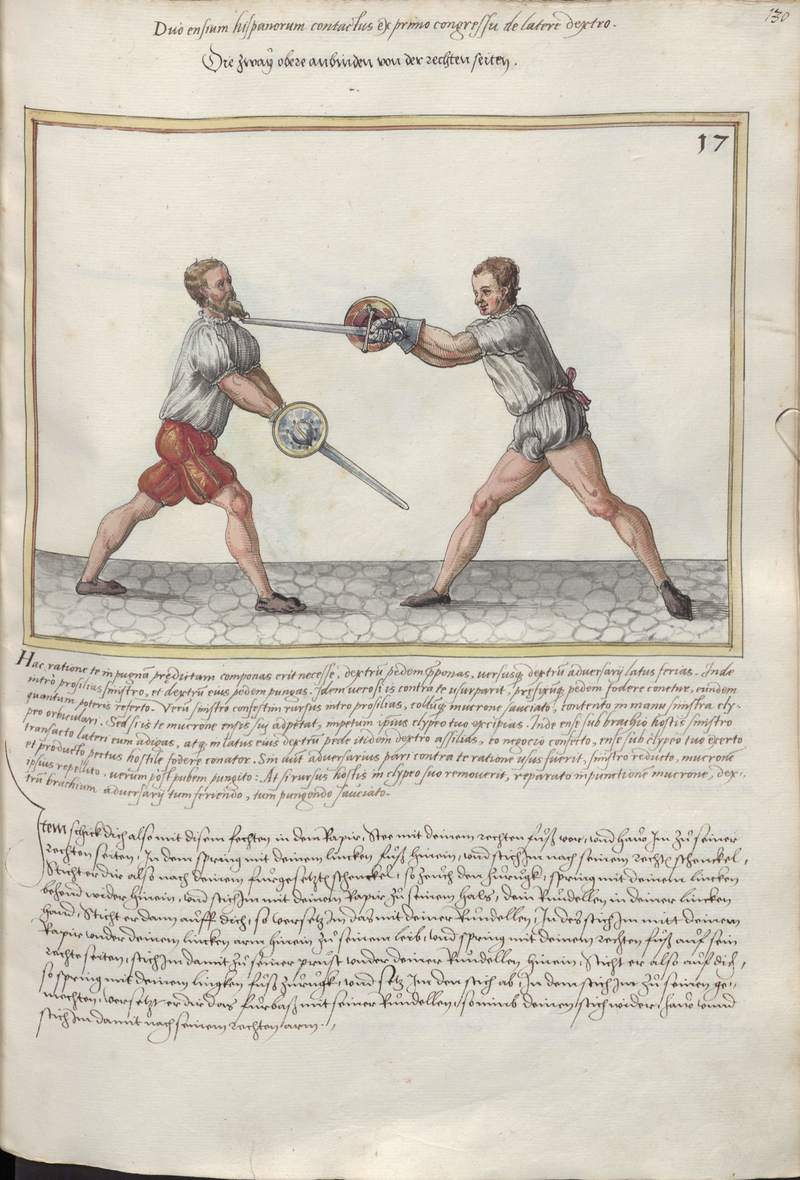 130
Duo ensium hispanorum contactus ex primo congressu de latere dextro.
Die zway obere anbinden von der rechten seiten.
17
Hac ratione te in pugnā prędictam componas erit necesse, dextrū pedem p̄ponas, versusq̨ dextrū adversarij latus ferias. Inde
intro prosilias sinistro, et dextrū eius pedem pungas. Idem vero si is contra te usurparit, pręfixūq̨ pedem fodere conetur, eundem
quantum poteris referto. Verū sinistro confestim rursus intro prosilias, collūq̨ mucrone sauciato, contento in manu sinistra cly-
peo orbiculari. Sed si is te mucrone ensis sui adpetat, impetum ipsius clypeo tuo excipias. Inde ense sub brachio hostis sinistro
transacto lateri eum adigas, atq̨ in latus eius dextrū pede itidem dextro assilias, eo negocio confecto, ense sub clypeo tuo exerto
et producto pectus hostile fodere conator. Sin aūt adversarius pari contra te ratione usus fuerit, sinistro reducto, mucronē
ipsius repellito, verum post pubem pungito: At si rursus hostis in clypeo suo removerit, reparato inpunctione mucrone, dex-
trū brachium adversarij tum feriendo, tum pungendo sauciato.
Item schick dich also mit disem fechten in dem Rapir, Stee mit deinem rechten fuß vor, vnd haw Im zů seiner
rechten seiten, In dem spring mit deinem lincken fuß hinein, vnd stich Im nach seinem rechtē schenckel,
Sticht er dir also nach deinem furgesetztē schenckel, so zeuch den zurugk, spring mit deinem lincken
behend wider hinein, vnd stich Im mit deinem Rapir zů seinem hals, dein Rundellen in deiner lincken
hand, Sticht er dann auff dich, so versetz Im das mit deiner Rundellen, In des stich Im mitt deinem
Rapir vnder deinem lincken arm hinein zů seinem leib, vnd spring mit deinem rechten fuß auf sein
rechte seiten, stich Im damit zů seiner prust vnder deiner Rundellen hinein, Sticht er also auf dich,
so spring mit deinem lingken fuß zurugk, vnd setz Im den stich ab, In dem stich Im zů seinen ge-
mechten, versetzt er dir das furbaß mit seiner Rundellen, so nimb deinen stich wider, haw vnnd
stich Im damit nach seinem rechten arm.